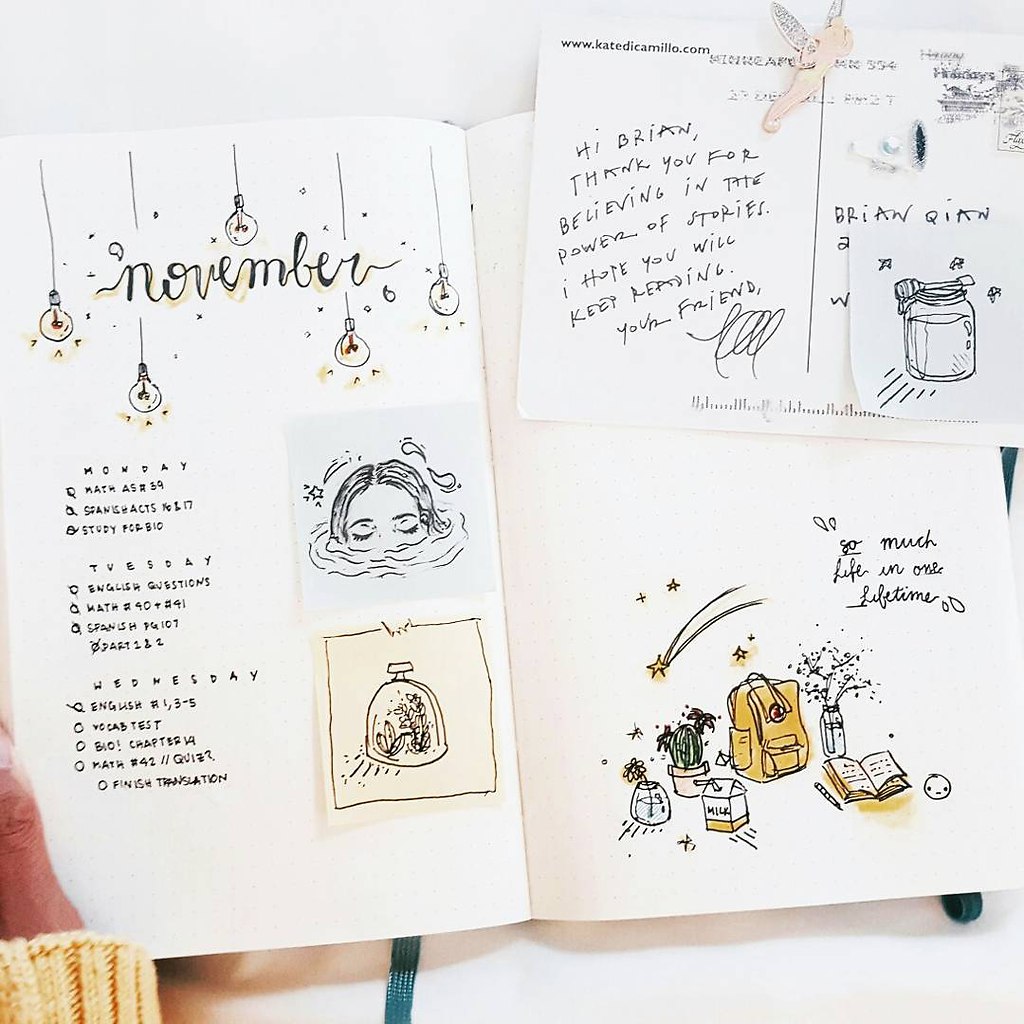 november
MONDAY
MATH AS#39
SPANISH ACTS 16 & 17
STUDY FOR BIO
TUESDAY
ENGLISH QUESTIONS
MATH #40 + #41
SPANISH PG 107
PART 1 & 2
WEDNESDAY
ENGLISH #1, 3-5
VOCAB TEST
BIO! CHAPTER 14
MATH #42 // QUIZ?
FINISH TRANSLATION
www.katedicamillo.com
MINNEAPOLIS MN 554
HI BRIAN,
THANK YOU FOR
BELIEVING IN THE
POWER OF STORIES.
i HOPE YOU WILL
KEEP READING.
YOUR FRIEND,
BRIAN QIAN
2
W
so much
life in one
lifetime
MILK